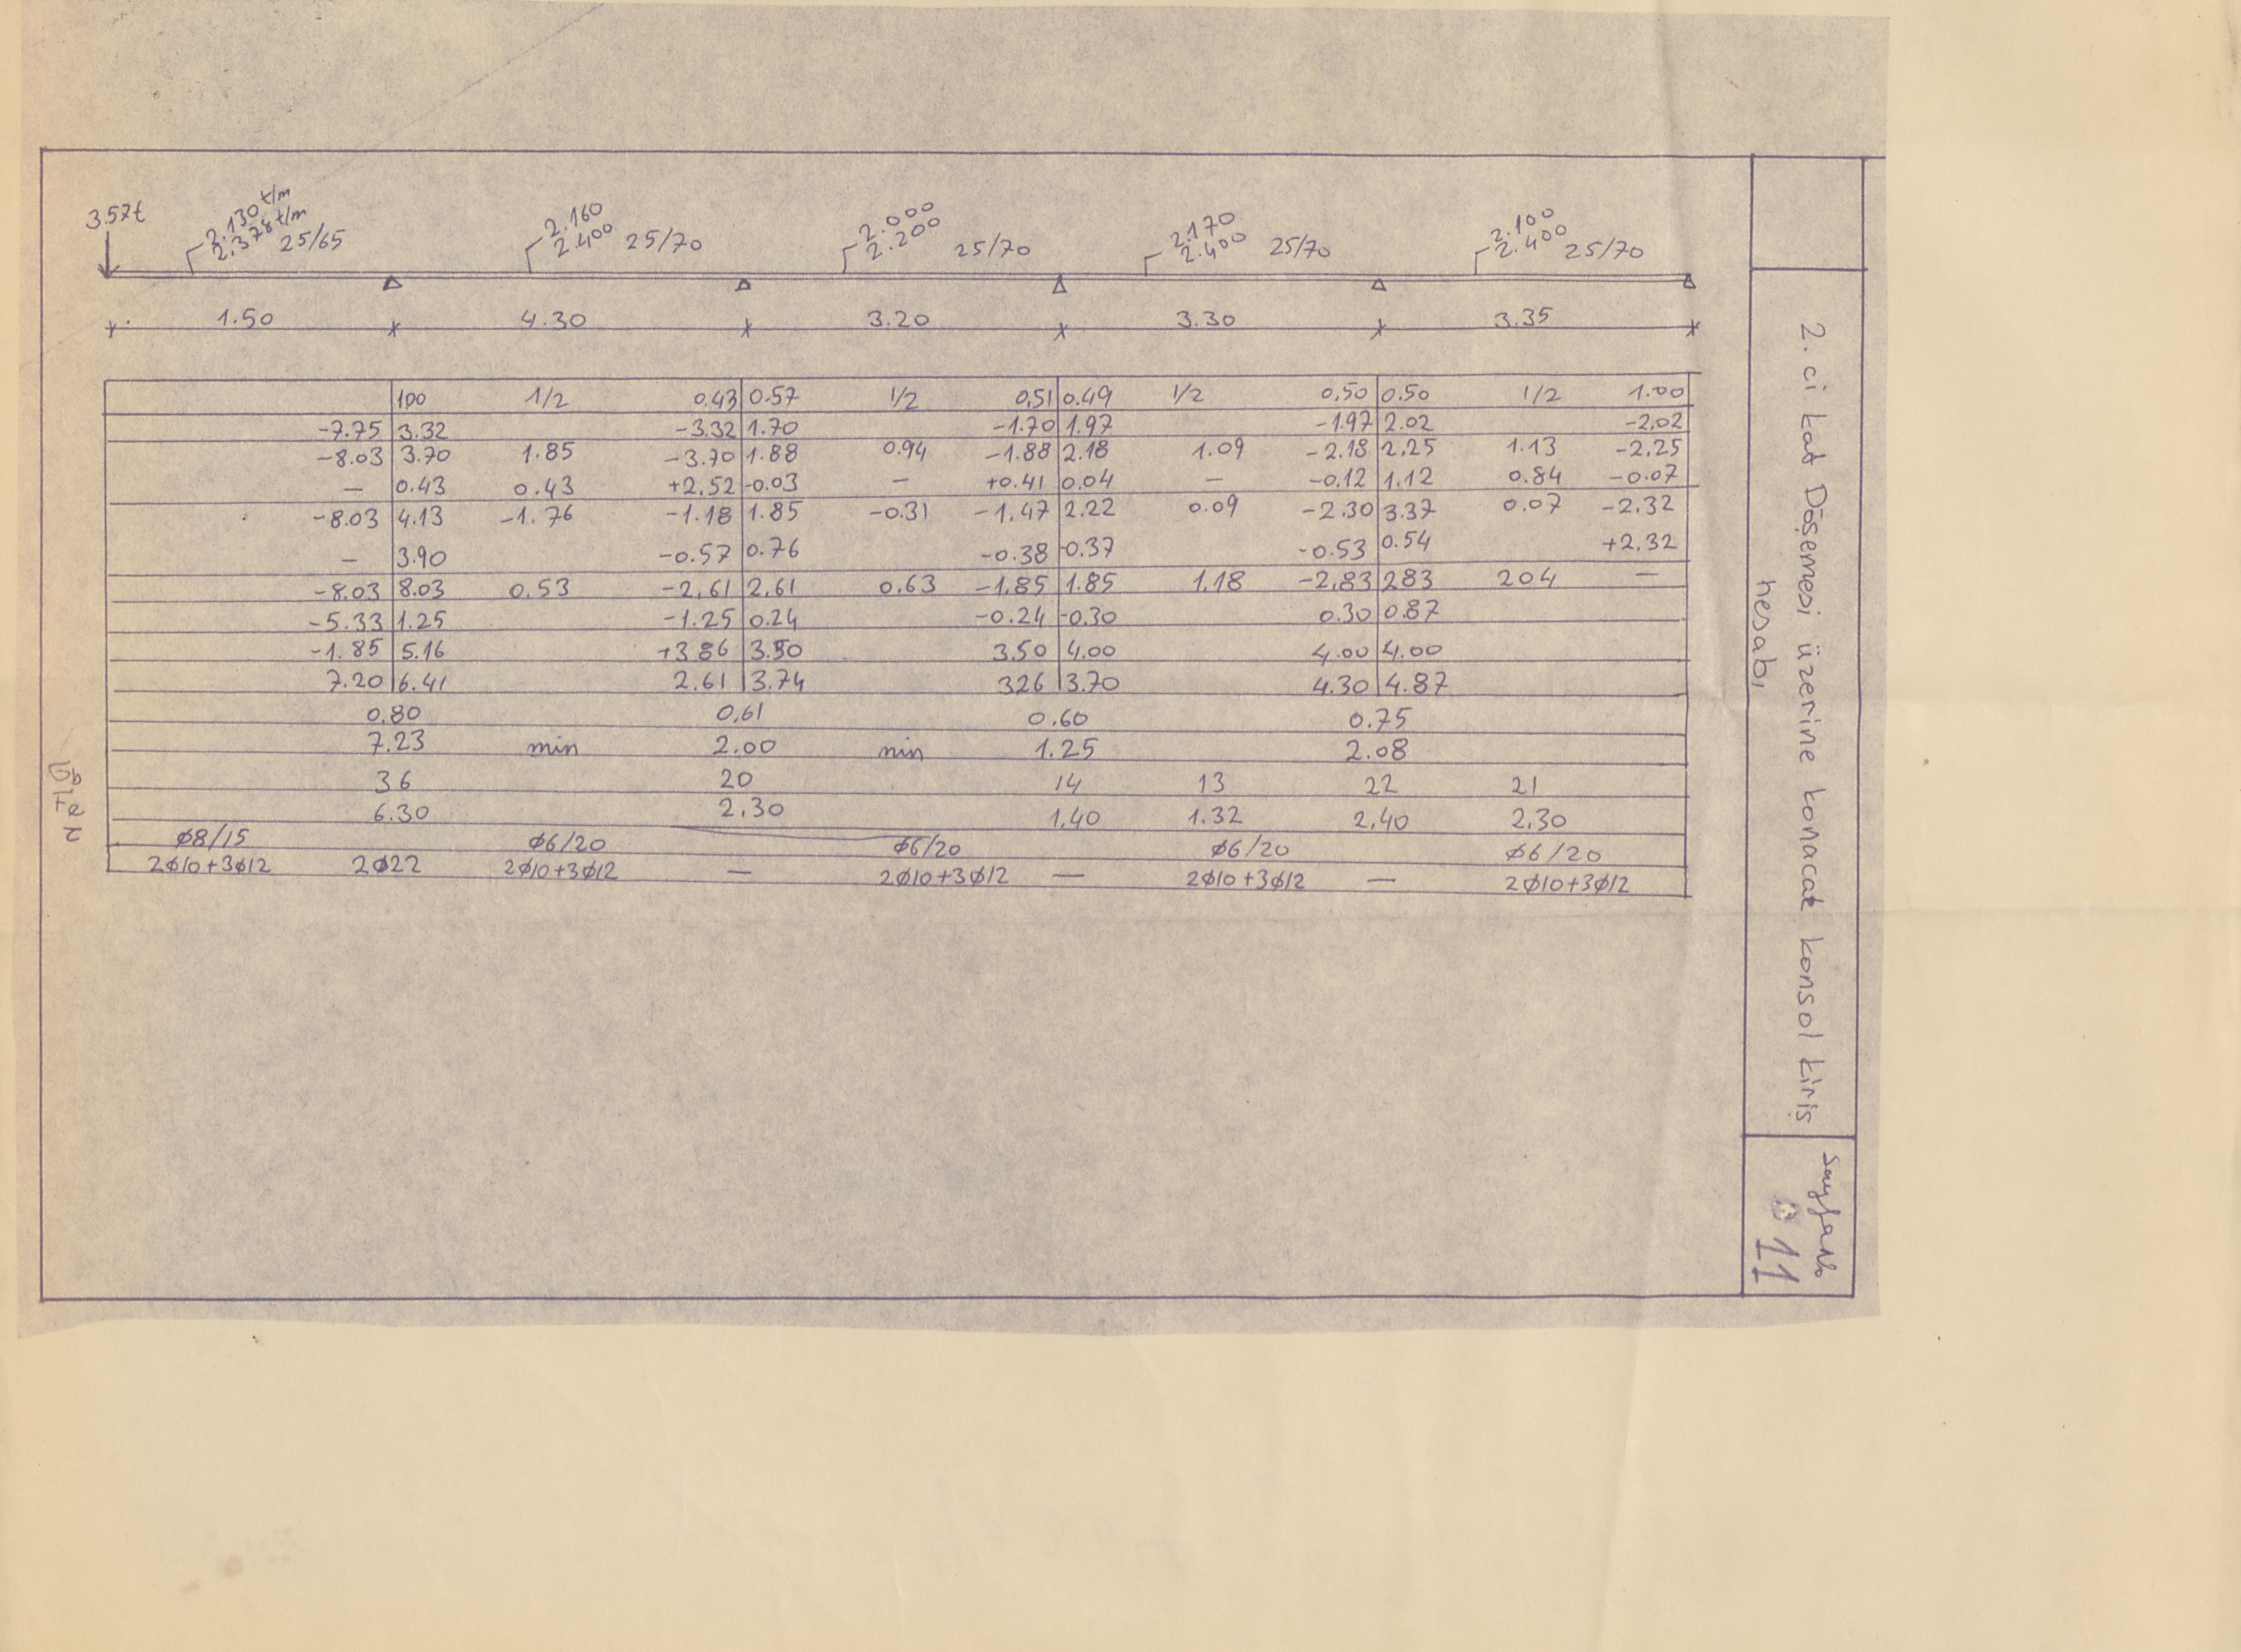 3.57t 2.130 t/m 2.160 2.000 2.170 2.100
2.378 t/m 25/65 2.400 25/70 2.200 25/70 2.400 25/70 2.400 25/70
1.50 4.30 3.20 3.30 3.35
100 1/2 0.43 0.57 1/2 0.51 0.49 1/2 0.50 0.50 1/2 1.00
-7.75 3.32 -3.32 1.70 -1.70 1.97 -1.97 2.02 -2.02
-8.03 3.70 1.85 -3.70 1.88 0.94 -1.88 2.18 1.09 -2.18 2.25 1.13 -2.25
— 0.43 0.43 +2.52 -0.03 — +0.41 0.04 — -0.12 1.12 0.84 -0.07
-8.03 4.13 -1.76 -1.18 1.85 -0.31 -1.47 2.22 0.09 -2.30 3.37 0.07 -2.32
— 3.90 -0.57 0.76 -0.38 -0.37 -0.53 0.54 +2.32
-8.03 8.03 0.53 -2.61 2.61 0.63 -1.85 1.85 1.18 -2.83 283 204 —
-5.33 1.25 -1.25 0.24 -0.24 -0.30 0.30 0.87
-1.85 5.16 +3.86 3.50 3.50 4.00 4.00 4.00
7.20 6.41 2.61 3.74 326 3.70 4.30 4.87
0.80 0.61 0.60 0.75
7.23 min 2.00 min 1.25 2.08
36 20 14 13 22 21
6.30 2.30 1.40 1.32 2.40 2.30
Ø8/15 Ø6/20 Ø6/20 Ø6/20 Ø6/20
2Ø10+3Ø12 2Ø22 2Ø10+3Ø12 — 2Ø10+3Ø12 — 2Ø10+3Ø12 — 2Ø10+3Ø12
2.ci kat Döşemesi üzerine konacak konsol kiriş
hesabı
Sayfa No
11